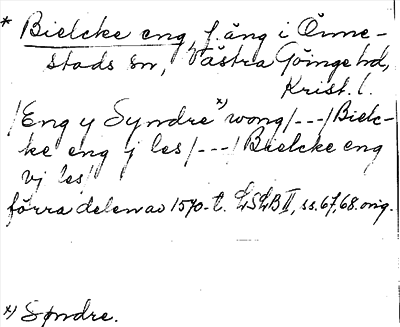 * Bielcke eng, f. äng i Önne-
stads sn, Västra Göinge hd,
Krist. l.
/Eng y Syndre *) wong/---/Bielc-
ke eng j les/---/Bielcke eng
vj les/
förra delen av 1570-t. LSLB II, ss. 67, 68. orig.
*) Søndre.